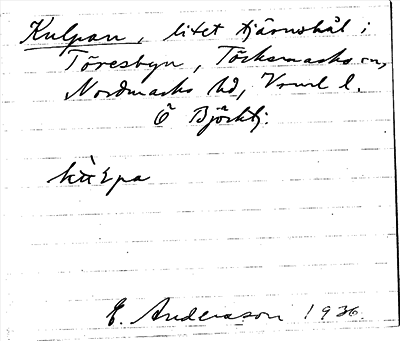 Kulpan, litet tjärnshål i
Töresbyn, Töcksmarks sn,
Nordmarks hd, Vrml l.
Ö Björkbj:
E. Andersson 1936.